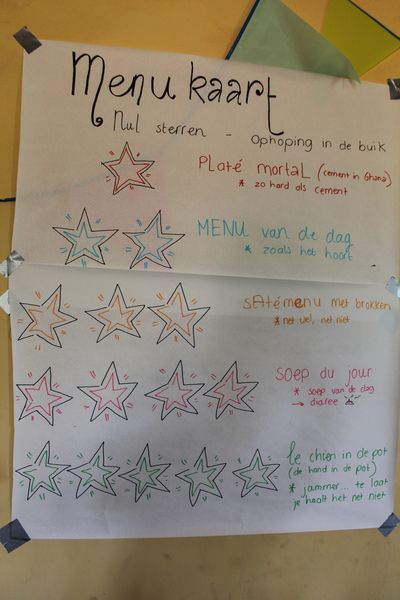 Menu kaart
Nul sterren - Ophoping in de buik
Platé mortal (cement in Ghana)
* zo hard als cement
MENU van de dag
* zoals het hoort
satémenu met brokken
* net wel, net niet
soep du jour
* soep van de dag
→ diaree
le chien in de pot
(de hond in de pot)
* jammer... te laat
je haalt het net niet